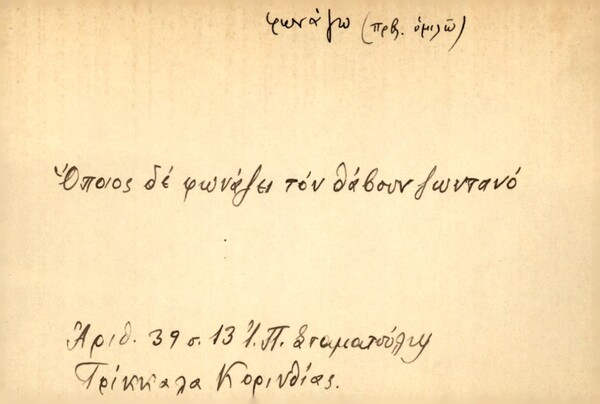 φωνάζω (πρβ. ὁμιλῶ)
Ὅποιος δέ φωνάζει τόν θάβουν ζωντανό
Ἀριθ. 39 σ. 13 Ἰ. Π. Σταματούλη
Τρίκκαλα Κορινθίας.